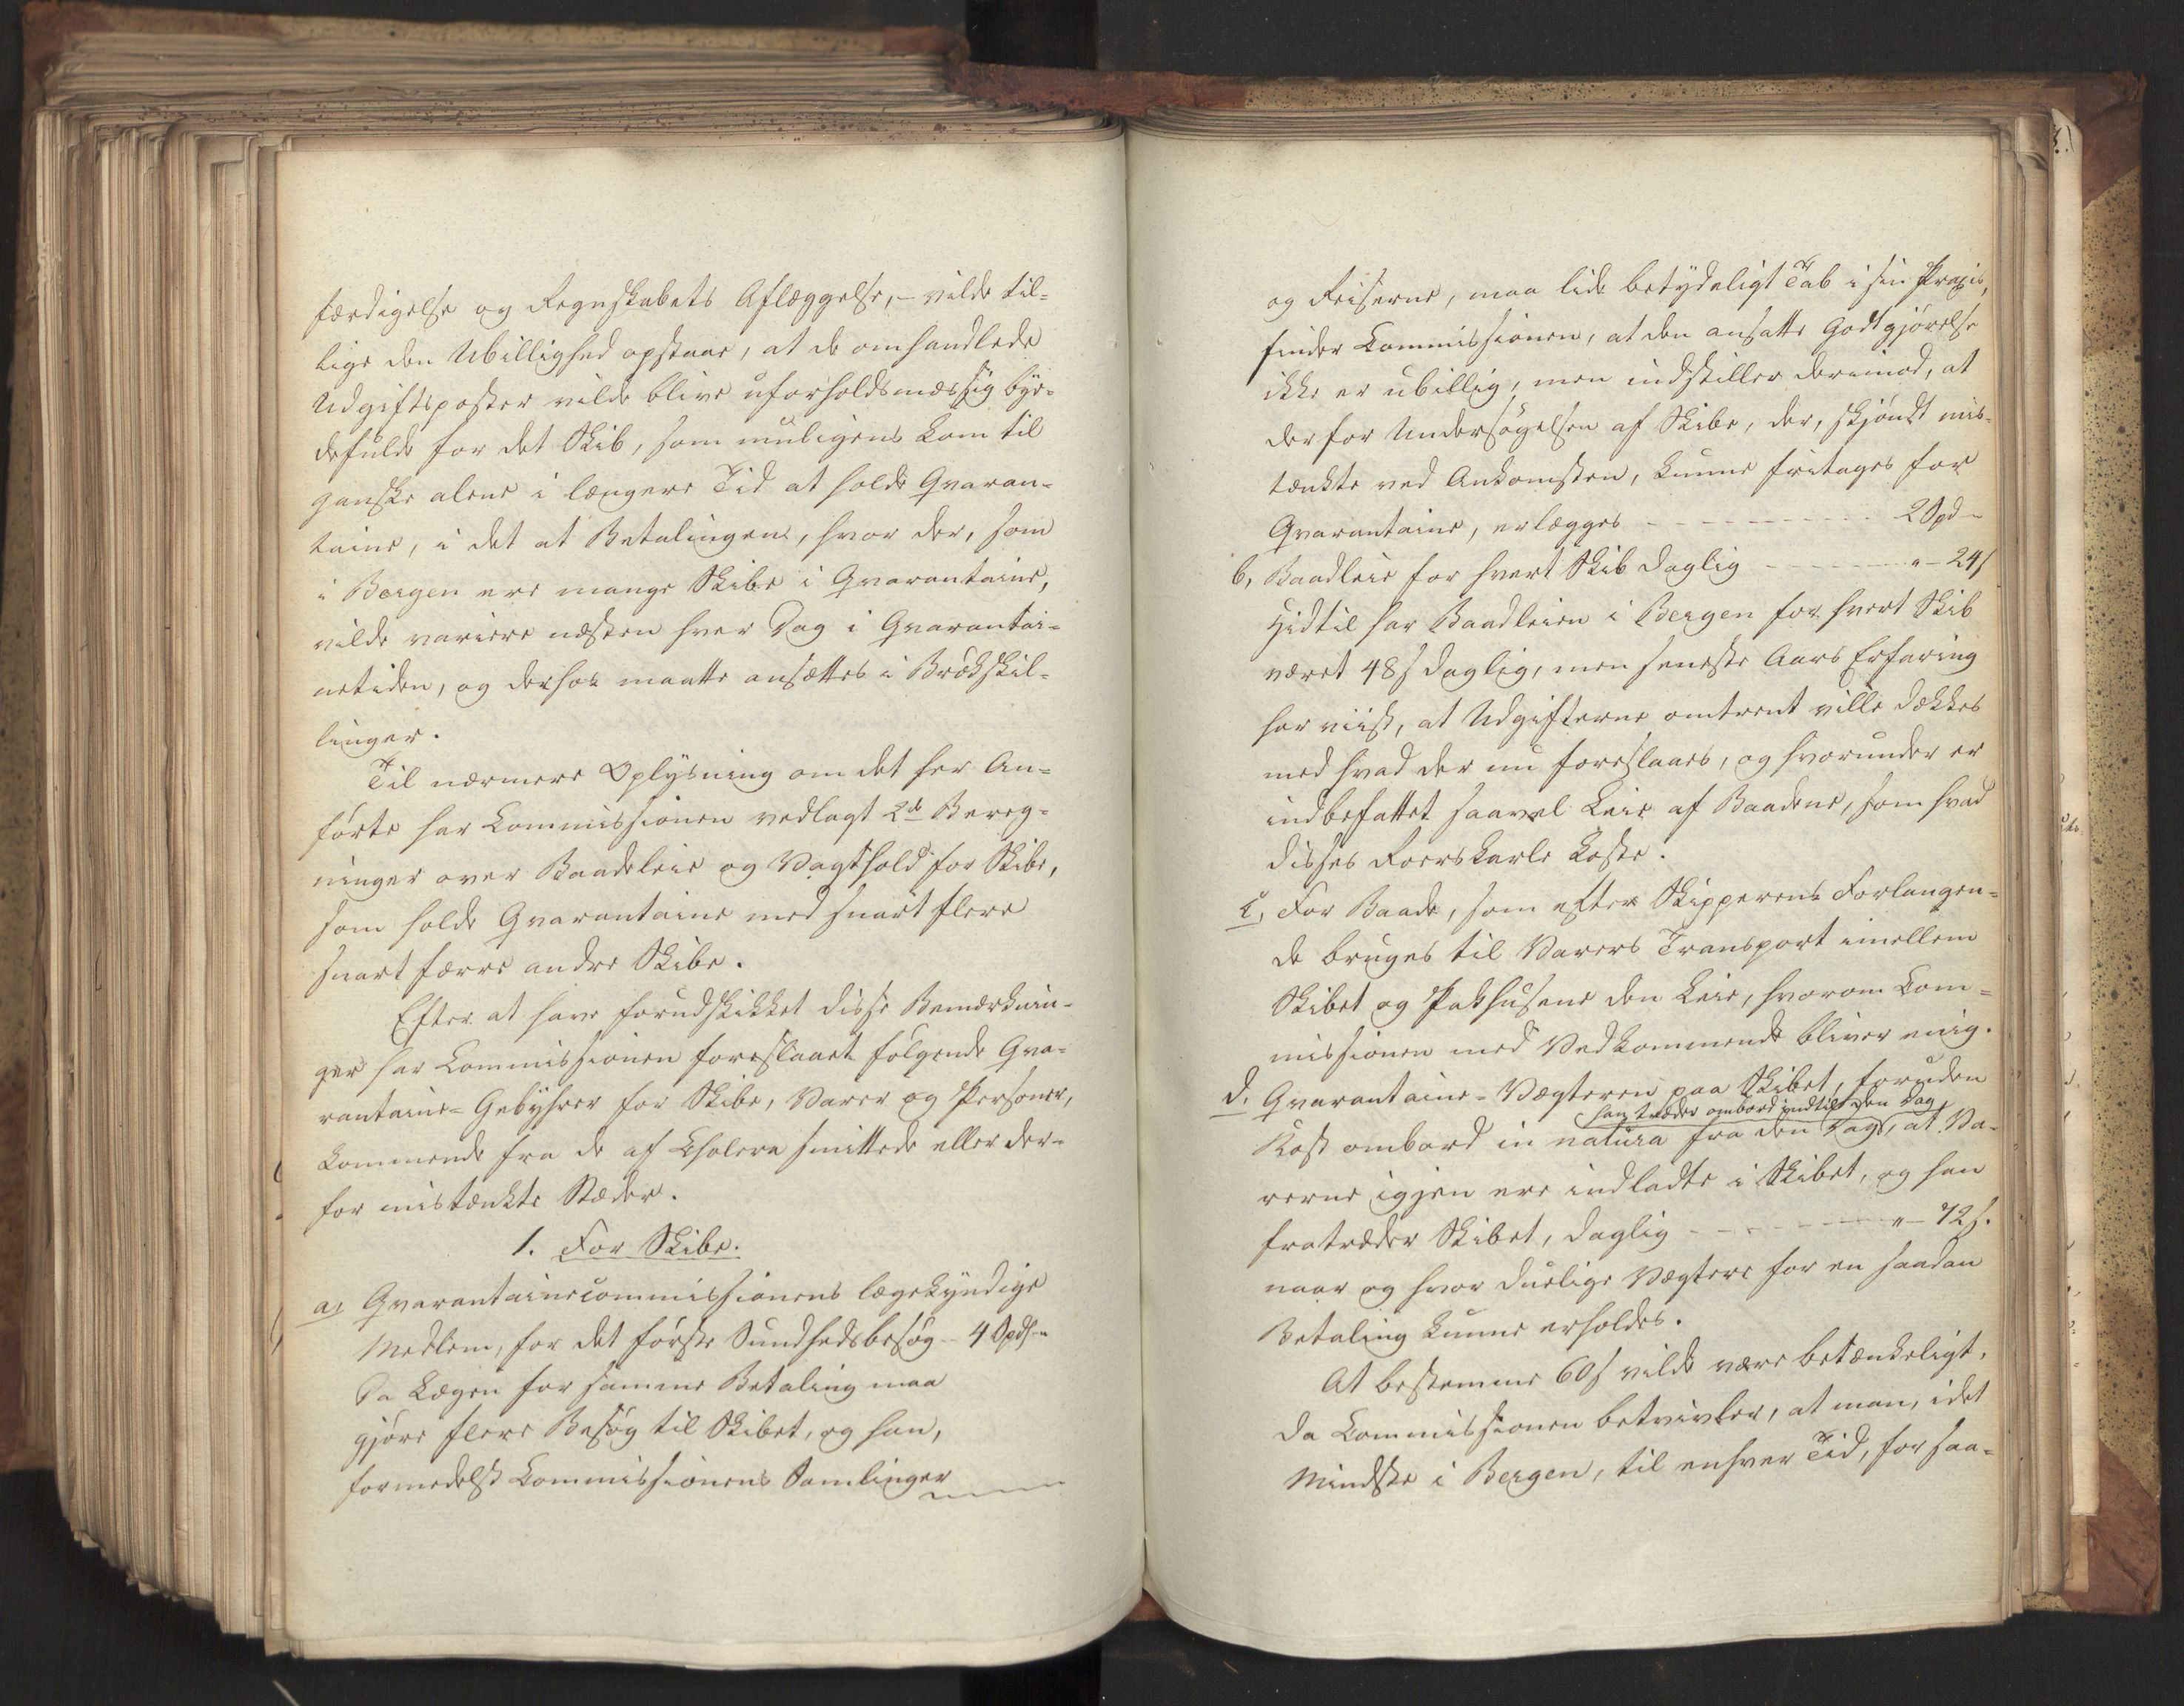 færdigelse og Regnskabets Aflæggelse, – vilde til-
lige den Ubillighed opstaae, at de omhandlede
Udgiftsposter vilde blive uforholdsmæssig byr-
defulde for det Skib, som muligens kom til
ganske alene i længere Tid at holde Qvaran-
taine, i det at Betalingen, hvor der, som
i Bergen ere mange Skibe i Qvarantaine,
vilde variere næsten hver Dag i Qvarantai-
netiden, og derhos maatte ansættes i Brødskil-
linger.
Til nærmere Oplysning om det her An-
førte har Commissionen vedlagt 2de Bereg-
ninger over Baadeleie og Vagthold for Skibe,
som holde Qvarantaine med snart flere
snart færre andre Skibe.
Efter at have forudskikket disse Bemærknin-
ger har Commissionen foreslaaet følgende Qva-
rantaine-Gebyhrer for Skibe, Varer og Personer,
kommende fra de af Cholera smittede eller der-
for mistænkte Stæder.
1. For Skibe.
a, Qvarantainecommissionens lægekyndige
Medlem, for det første Sundhedsbesøg – 4 Spd –"
Da Lægen for samme Betaling maa
gjøre flere Besøg til Skibet, og han,
formedelst Commissionens Samlinger
og Reiserne, maa lide betydeligt Tab i sin Praxis,
finder Commissionen, at den ansatte Godtgjørelse
ikke er ubillig, men indstiller derimod, at
der for Undersøgelsen af Skibe, der, skjøndt mis-
tænkte ved Ankomsten, kunne fritages for
Qvarantaine, erlægges - - - - - - 2 Spd –"
b, Baadleie for hvert Skib daglig - - - - " – 24 s
Hidtil har Baadleien i Bergen for hvert Skib
været 48 s daglig, men seneste Aars Erfaring
har viist, at Udgifterne omtrent ville dækkes
med hvad der nu foreslaaes, og hvorunder er
indbefattet saavel Leie af Baadene, som hvad
disses Roerskarle koste.
c, For Baade, som efter Skipperens Forlangen-
de bruges til Varers Transport imellem
Skibet og Pakhusene den Leie, hvorom Com-
missionen med Vedkommende bliver enig.
d. Qvarantaine-Vægteren paa Skibet, foruden
han træder ombord indtil den Dag,
Kost ombord in natura fra den Dag, at Va-
rerne igjen ere indladte i Skibet, og han
fratræder Skibet, daglig - - - - - " – 72 s.
naar og hvor duelige Vægtere for en saadan
Betaling kunne erholdes.
At bestemme 60 s vilde være betænkeligt,
da Commissionen betvivler, at man, i det
Mindste i Bergen, til enhver Tid, for saa-